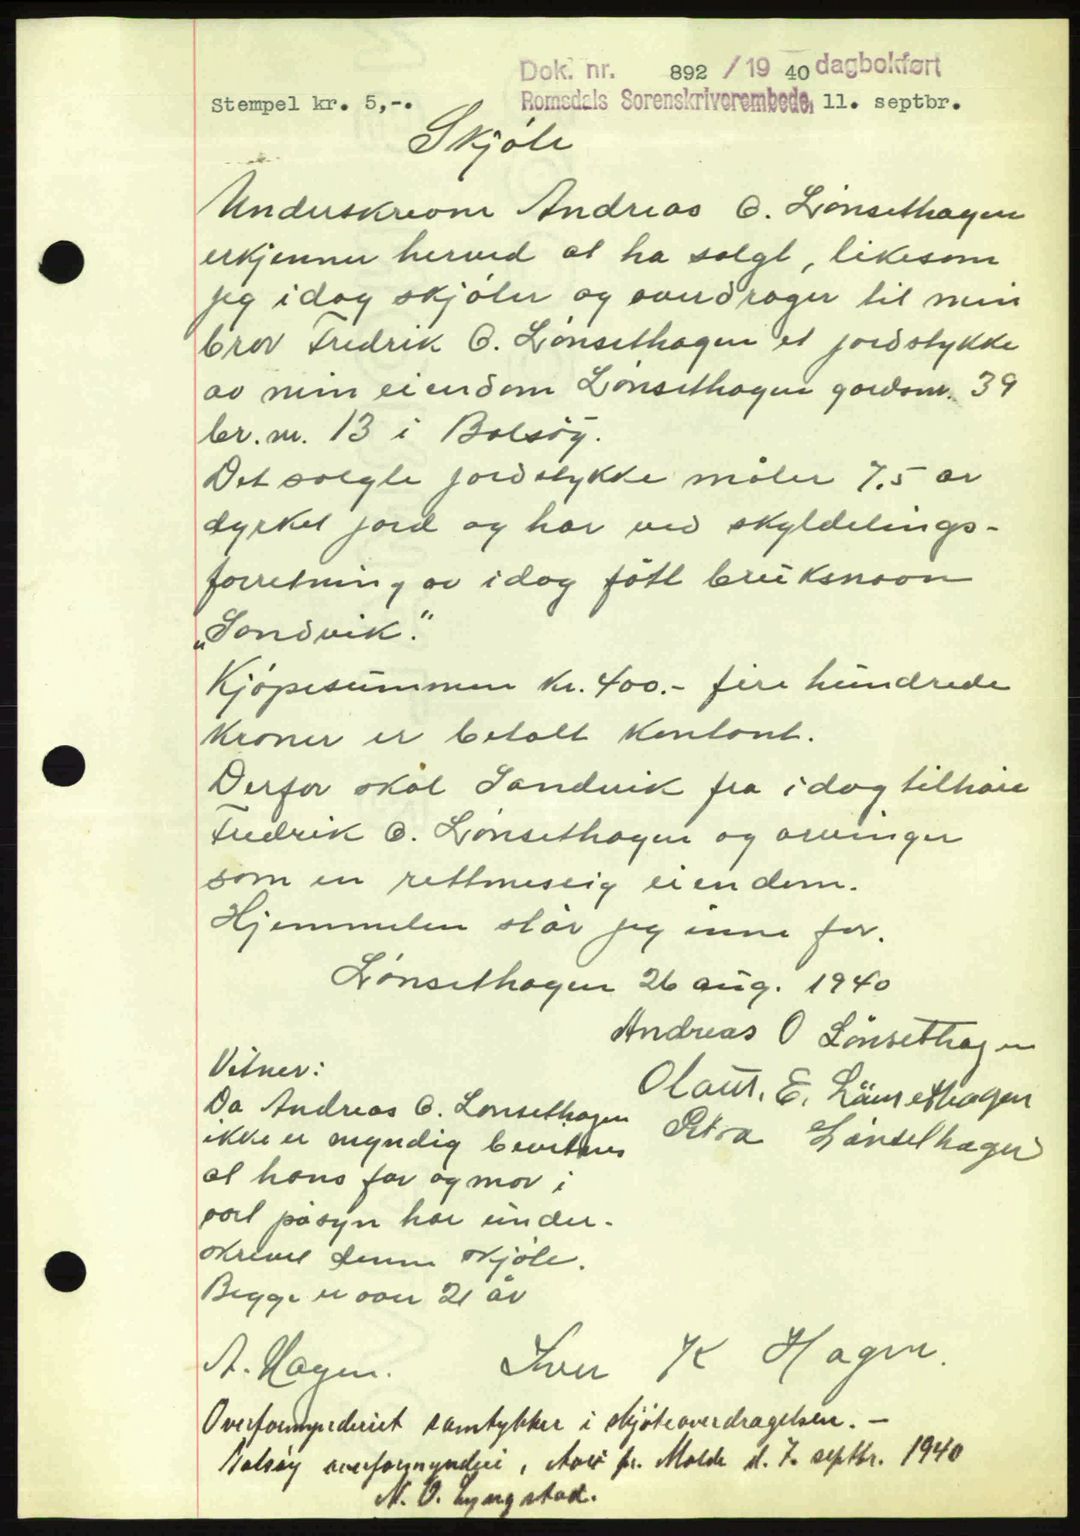 Dok. nr. 892 / 19 40 dagbokført
Stempel kr. 5,-. Romsdals Sorenskriverembede, 11. septbr.
Skjöte
Underskrevne Andreas O. Lönsethagen
erkjenner herved at ha solgt, likesom
jeg idag skjöter og overdrager til min
bror Fredrik O. Lönsethagen et jordstykke
av min eiendom Lönsethagen gardsnr. 39
br. nr. 13 i Bolsöy.
Det solgte jordstykke måler 7.5 ar
dyrket jord og har ved skyldelings-
forretning av idag fått bruksnavn
„Sandvik".
Kjöpesummen kr. 400.- fire hundrede
kroner er betalt kontant.
Derfor skal Sandvik fra idag tilhöre
Fredrik O. Lönsethagen og arvinger
som en rettmessig eiendom.
Hjemmelen står jeg inne for.
Lönsethagen 26 aug. 1940
Andreas O Lönsethagen
Olaus. E. Lönsethagen
Petra Lönsethagen
Vitner:
Da Andreas O. Lonsethagen
ikke er myndig bevitnes
at hans far og mor i
vort påsyn har under-
skrevet denne skjöte.
Begge er over 21 år
A. Hagen. Iver K Hagen.
Overformynderiet samtykker i skjöteoverdragelsen. -
Bolsöy overformynderi, pr. Molde d. 7. septbr. 1940
N. O. Lyngstad.